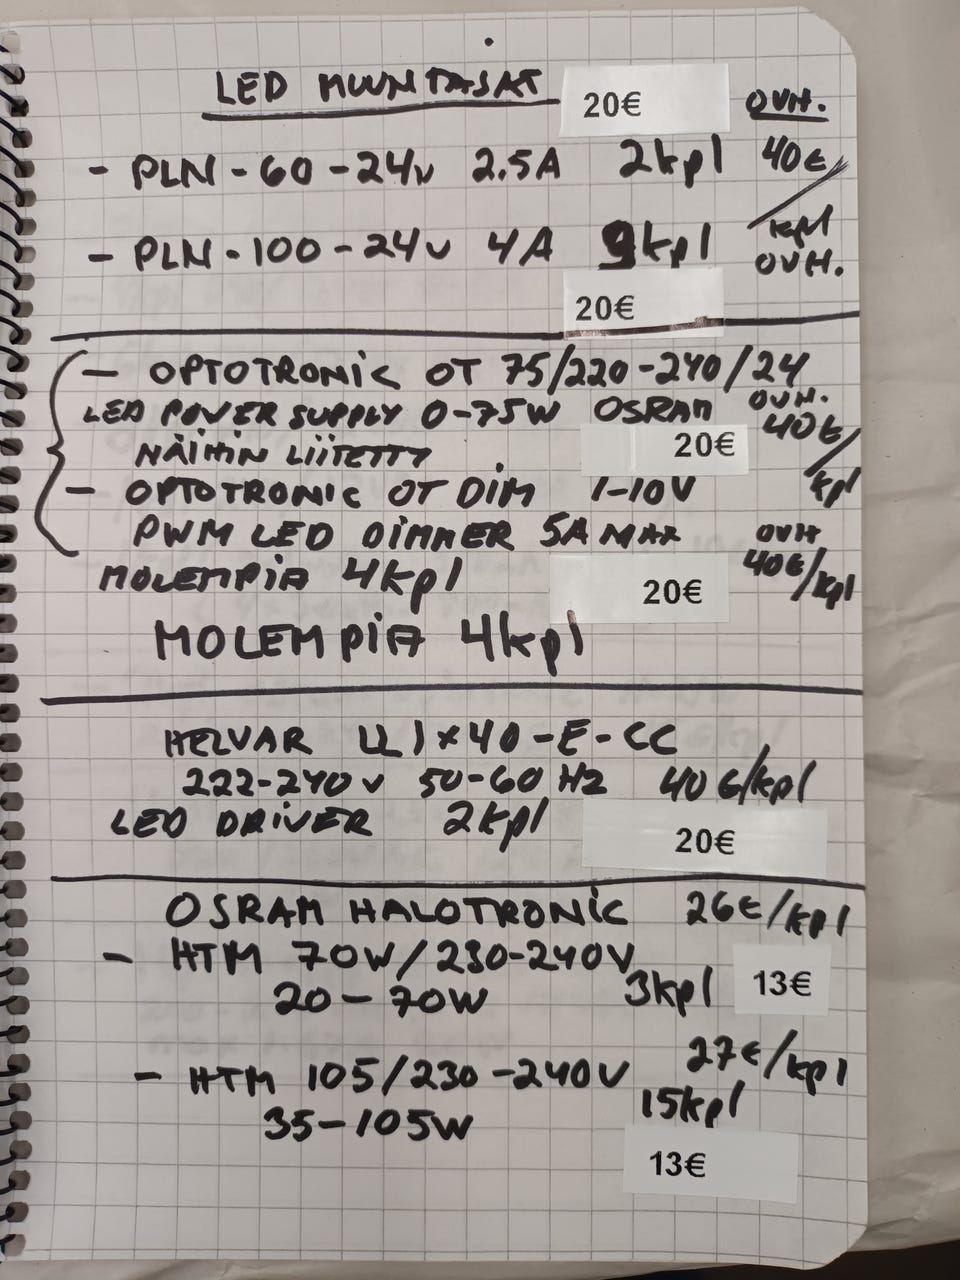 LED MUUNTAJAT 20€ OVH.
- PLN-60-24V 2.5A 2kpl 40€/
- PLN-100-24V 4A 9kpl kpl
OVH.
20€
- OPTOTRONIC OT 75/220-240/24
LED POWER SUPPLY 0-75W OSRAM OVH.
NÄIHIN LIITETTY 20€ 40€/kpl
- OPTOTRONIC OT DIM 1-10V
PWM LED DIMMER 5A MAX OVH
MOLEMPIA 4kpl 20€ 40€/kpl
MOLEMPIA 4kpl
HELVAR LL1x40-E-CC
222-240V 50-60HZ 40€/kpl
LED DRIVER 2kpl 20€
OSRAM HALOTRONIC 26€/kpl
- HTM 70W/230-240V
20-70W 3kpl 13€
27€/kpl
- HTM 105/230-240V
35-105W 15kpl
13€